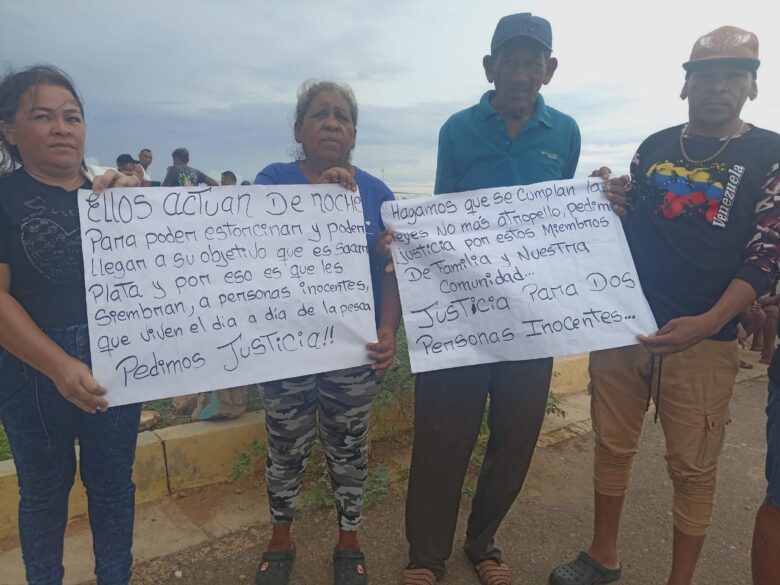 Ellos actuan De noche
Para poder estorcinar y poder
llegar a su objetivo que es sacar
Plata y por eso es que les
siembran, a personas inocentes,
que viven el día a día de la pesca
Pedimos Justicia!!
Hagamos que se cumplan las
leyes No más atropello, Pedimos
Justicia por estos Miembros
De Familia y Nuestra
Comunidad...
Justicia Para Dos
Personas Inocentes...
Venezuela